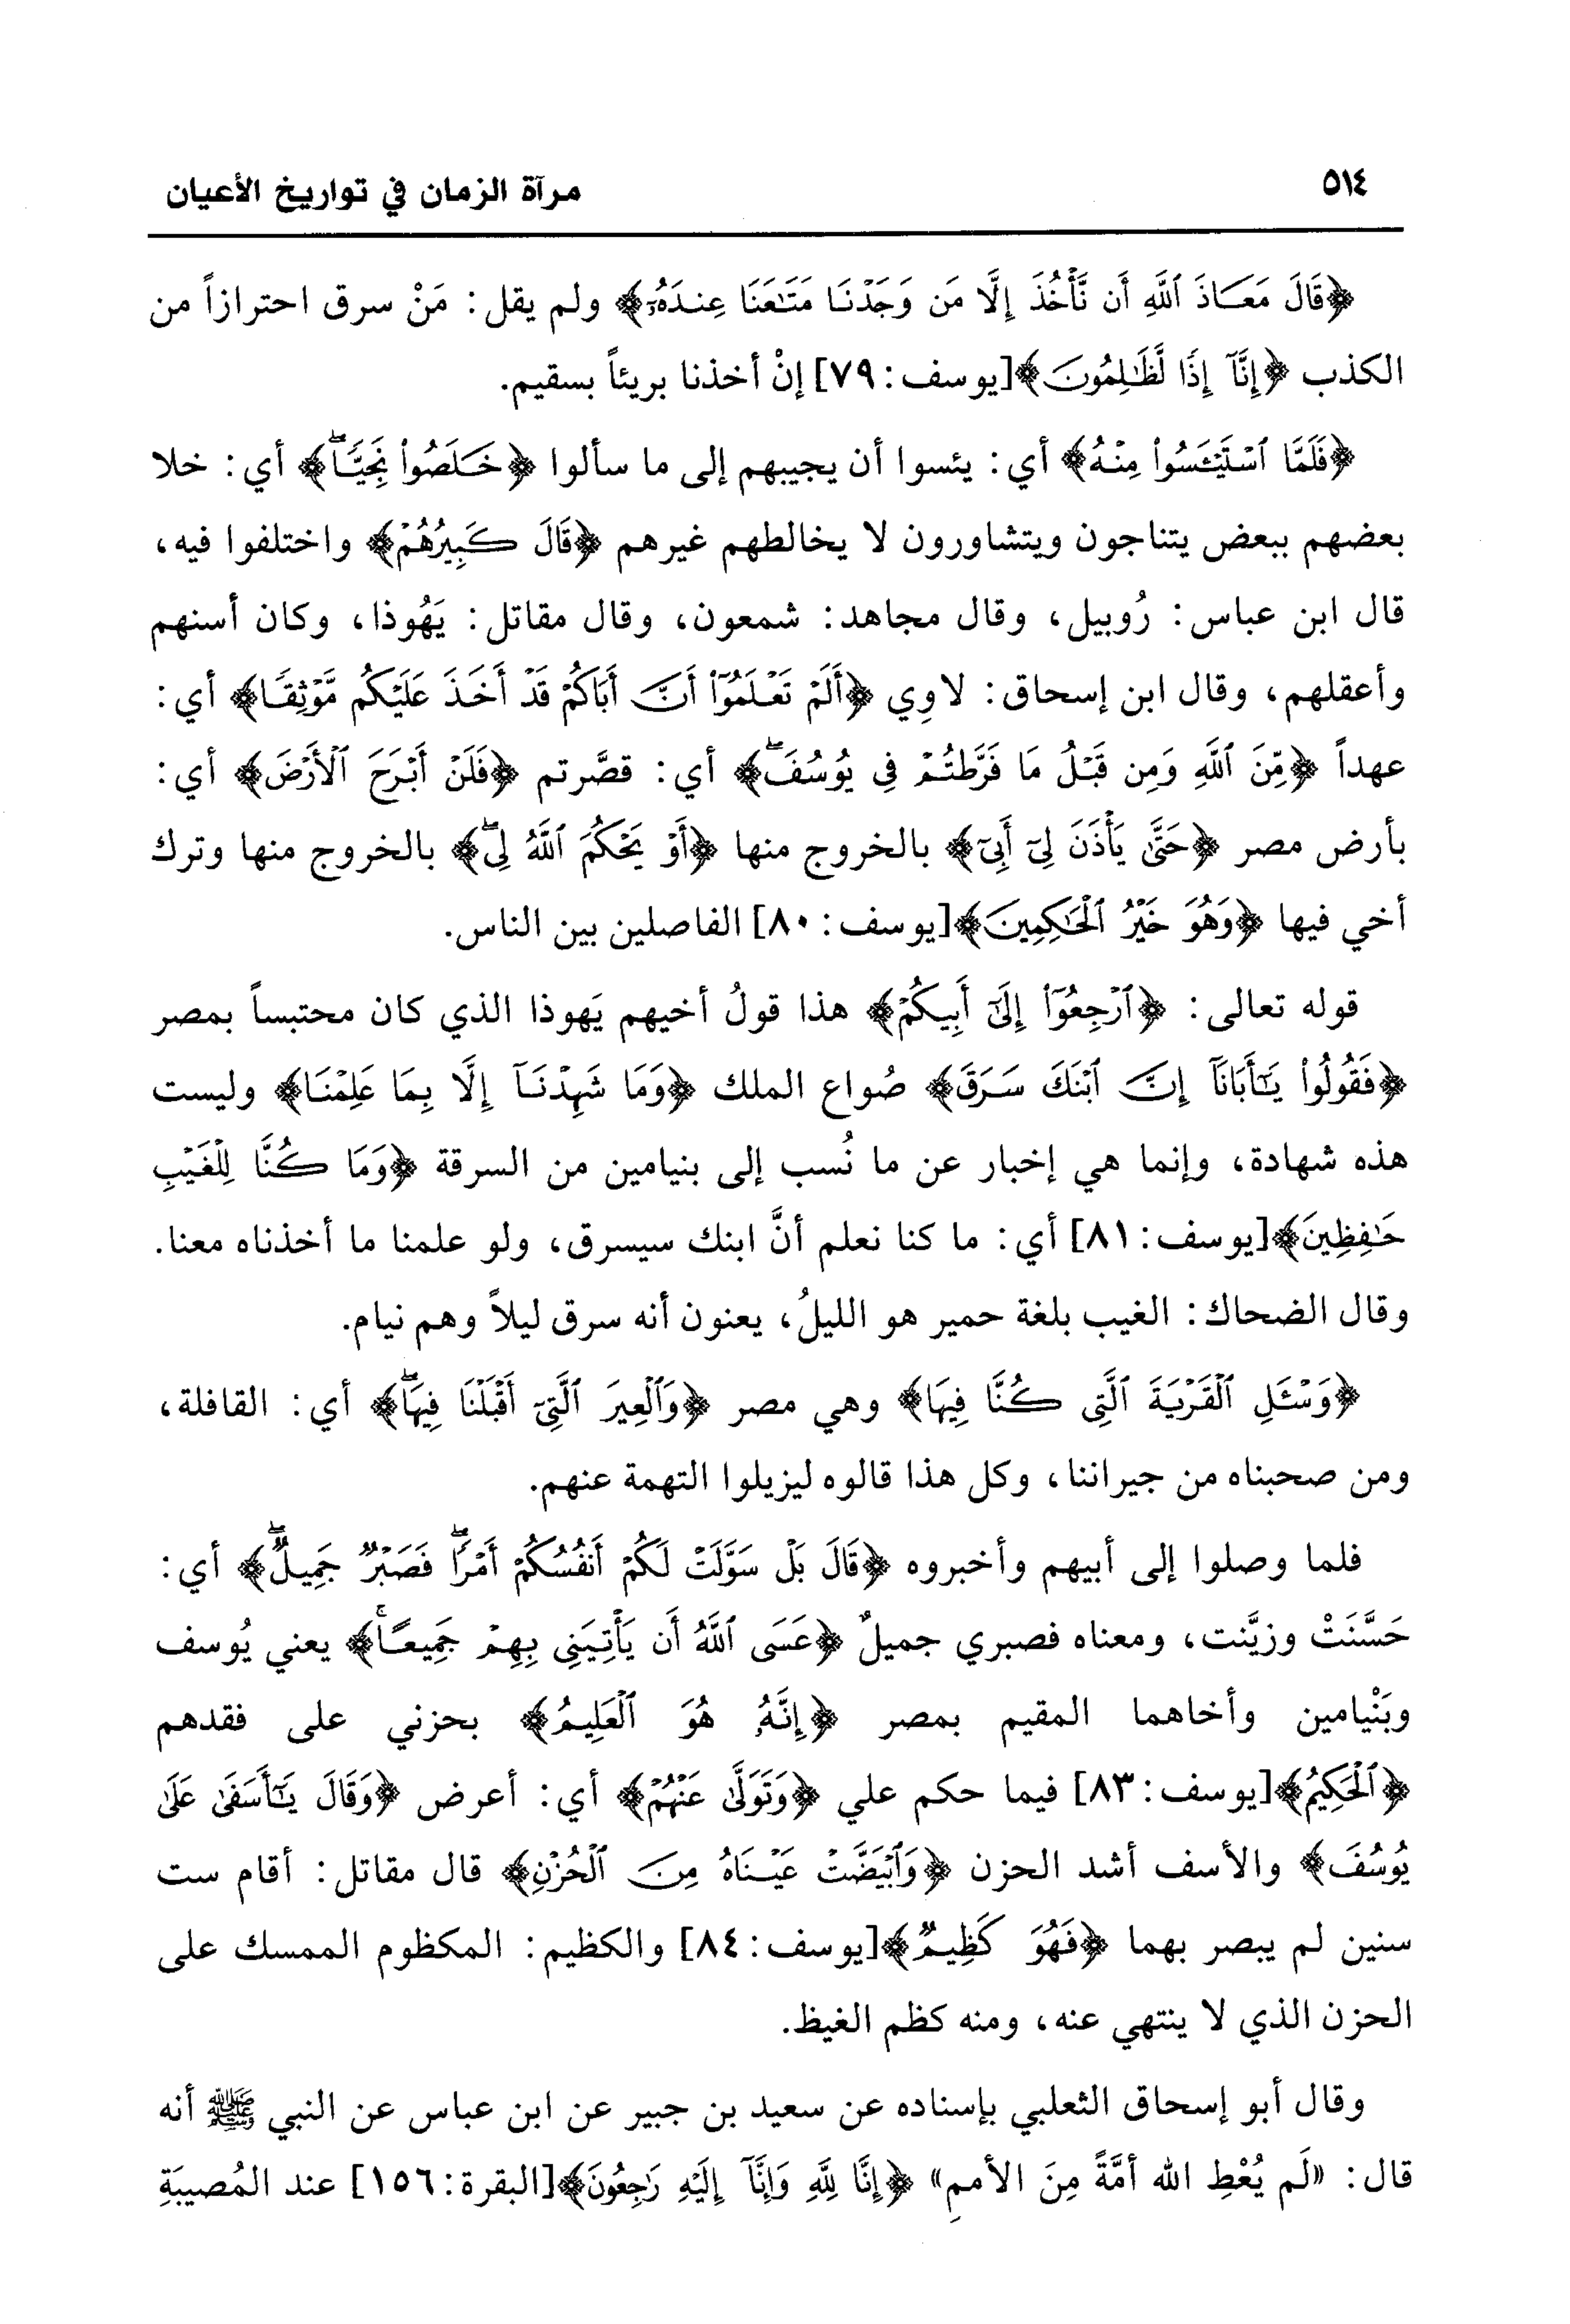 ٥١٤
مرآة الزمان في تواريخ الأعيان
﴿قَالَ مَعَاذَ ٱللَّهِ أَن نَّأْخُذَ إِلَّا مَن وَجَدْنَا مَتَٰعَنَا عِندَهُۥٓ﴾ ولم يقل: مَنْ سرق احترازاً من
الكذب ﴿إِنَّآ إِذًا لَّظَٰلِمُونَ﴾[يوسف: ٧٩] إنْ أخذنا بريئاً بسقيم.
﴿فَلَمَّا ٱسْتَيْـَٔسُوا۟ مِنْهُ﴾ أي: يئسوا أن يجيبهم إلى ما سألوا ﴿خَلَصُوا۟ نَجِيًّۭا ۖ﴾ أي: خلا
بعضهم ببعض يتناجون ويتشاورون لا يخالطهم غيرهم ﴿قَالَ كَبِيرُهُمْ﴾ واختلفوا فيه،
قال ابن عباس: رُوبيل، وقال مجاهد: شمعون، وقال مقاتل: يَهُوذا، وكان أسنهم
وأعقلهم، وقال ابن إسحاق: لاوِي ﴿أَلَمْ تَعْلَمُوٓا۟ أَنَّ أَبَاكُمْ قَدْ أَخَذَ عَلَيْكُم مَّوْثِقًا﴾ أي:
عهداً ﴿مِّنَ ٱللَّهِ وَمِن قَبْلُ مَا فَرَّطتُمْ فِى يُوسُفَ ۖ﴾ أي: قصَّرتم ﴿فَلَنْ أَبْرَحَ ٱلْأَرْضَ﴾ أي:
بأرض مصر ﴿حَتَّىٰ يَأْذَنَ لِىٓ أَبِىٓ﴾ بالخروج منها ﴿أَوْ يَحْكُمَ ٱللَّهُ لِى ۖ﴾ بالخروج منها وترك
أخي فيها ﴿وَهُوَ خَيْرُ ٱلْحَٰكِمِينَ﴾[يوسف: ٨٠] الفاصلين بين الناس.
قوله تعالى: ﴿ٱرْجِعُوٓا۟ إِلَىٰٓ أَبِيكُمْ﴾ هذا قولُ أخيهم يَهوذا الذي كان محتبساً بمصر
﴿فَقُولُوا۟ يَٰٓأَبَانَآ إِنَّ ٱبْنَكَ سَرَقَ﴾ صُواع الملك ﴿وَمَا شَهِدْنَآ إِلَّا بِمَا عَلِمْنَا﴾ وليست
هذه شهادة، وإنما هي إخبار عن ما نُسب إلى بنيامين من السرقة ﴿وَمَا كُنَّا لِلْغَيْبِ
حَٰفِظِينَ﴾[يوسف: ٨١] أي: ما كنا نعلم أنَّ ابنك سيسرق، ولو علمنا ما أخذناه معنا.
وقال الضحاك: الغيب بلغة حمير هو الليلُ، يعنون أنه سرق ليلاً وهم نيام.
﴿وَسْـَٔلِ ٱلْقَرْيَةَ ٱلَّتِى كُنَّا فِيهَا﴾ وهي مصر ﴿وَٱلْعِيرَ ٱلَّتِىٓ أَقْبَلْنَا فِيهَا ۖ﴾ أي: القافلة،
ومن صحبناه من جيراننا، وكل هذا قالوه ليزيلوا التهمة عنهم.
فلما وصلوا إلى أبيهم وأخبروه ﴿قَالَ بَلْ سَوَّلَتْ لَكُمْ أَنفُسُكُمْ أَمْرًۭا ۖ فَصَبْرٌۭ جَمِيلٌ ۖ﴾ أي:
حَسَّنَتْ وزيَّنت، ومعناه فصبري جميلٌ ﴿عَسَى ٱللَّهُ أَن يَأْتِيَنِى بِهِمْ جَمِيعًا ۚ﴾ يعني يُوسف
وبَنْيامين وأخاهما المقيم بمصر ﴿إِنَّهُۥ هُوَ ٱلْعَلِيمُ﴾ بحزني على فقدهم
﴿ٱلْحَكِيمُ﴾[يوسف: ٨٣] فيما حكم علي ﴿وَتَوَلَّىٰ عَنْهُمْ﴾ أي: أعرض ﴿وَقَالَ يَٰٓأَسَفَىٰ عَلَىٰ
يُوسُفَ﴾ والأسف أشد الحزن ﴿وَٱبْيَضَّتْ عَيْنَاهُ مِنَ ٱلْحُزْنِ﴾ قال مقاتل: أقام ست
سنين لم يبصر بهما ﴿فَهُوَ كَظِيمٌۭ﴾[يوسف: ٨٤] والكظيم: المكظوم الممسك على
الحزن الذي لا ينتهي عنه، ومنه كظم الغيظ.
وقال أبو إسحاق الثعلبي بإسناده عن سعيد بن جبير عن ابن عباس عن النبي ﷺ أنه
قال: «لَم يُعْطِ الله أمَّةً مِنَ الأممِ» ﴿إِنَّا لِلَّهِ وَإِنَّآ إِلَيْهِ رَٰجِعُونَ﴾[البقرة: ١٥٦] عند المُصيبَةِ